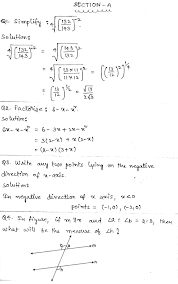 SECTION-A
Q1. Simplify: ⁴√[132/143]⁻²
Solution:
⁴√[132/143]⁻² = ⁴√[143/132]²
= ⁴√[13×11/12×11]² = ((13/12)²)^(1/4)
= [13/12]^(1/2) = √13/2√3
Q2. Factorise: 6-x-x²
Solution:
6x-x-x² = 6-3x+2x-x²
= 3(2-x)+x(2-x)
= (2-x)(3+x)
Q3. Write any two points lying on the negative
direction of x-axis.
Solution:
In negative direction of x axis, x<0
points = (-1,0), (-3,0)
Q4. In figure, if
and
then
what will be the measure of